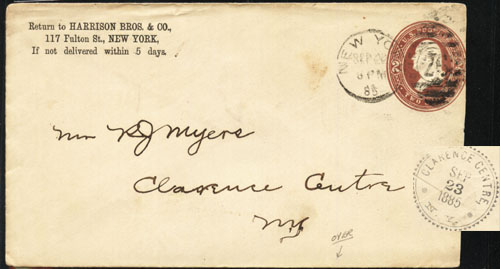 Return to HARRISON BROS. & CO.,
117 Fulton St., NEW YORK,
If not delivered within 5 days.
NEW YO
SEP
6 PM
85
Myers
Clarence Centre
NY
OVER
CLARENCE CENTRE,
SEP
23
1885
N.Y.